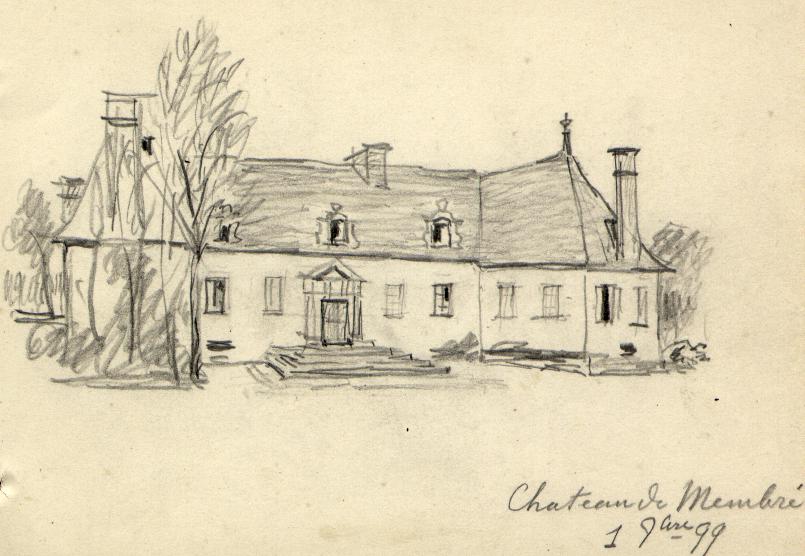 Chateau de Membré
1 9bre 99